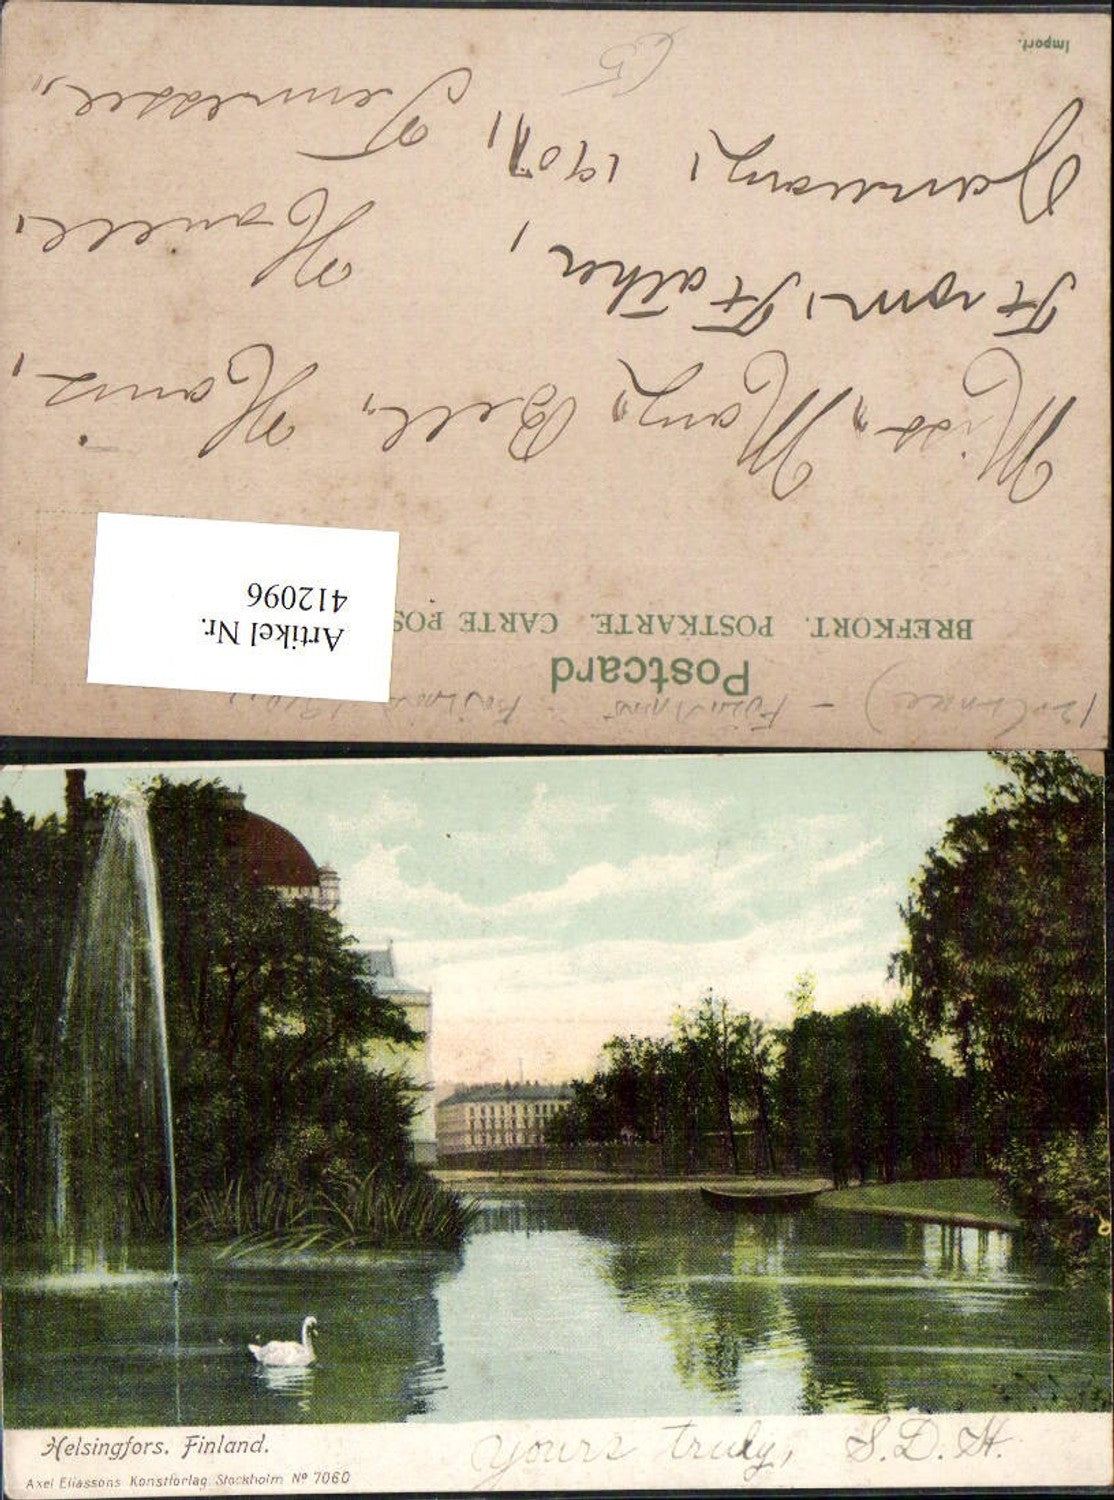 Postcard
BREFKORT. POSTKARTE. CARTE POS
Artikel Nr.
412096
Miss, Mary, Bell, Harris,
From, Father,
Harell,
January, 1907,
Tennessee,
Import.
Helsingfors. Finland.
Axel Eliassons Konstförlag. Stockholm Nº 7060
yours truly, S. D. H.